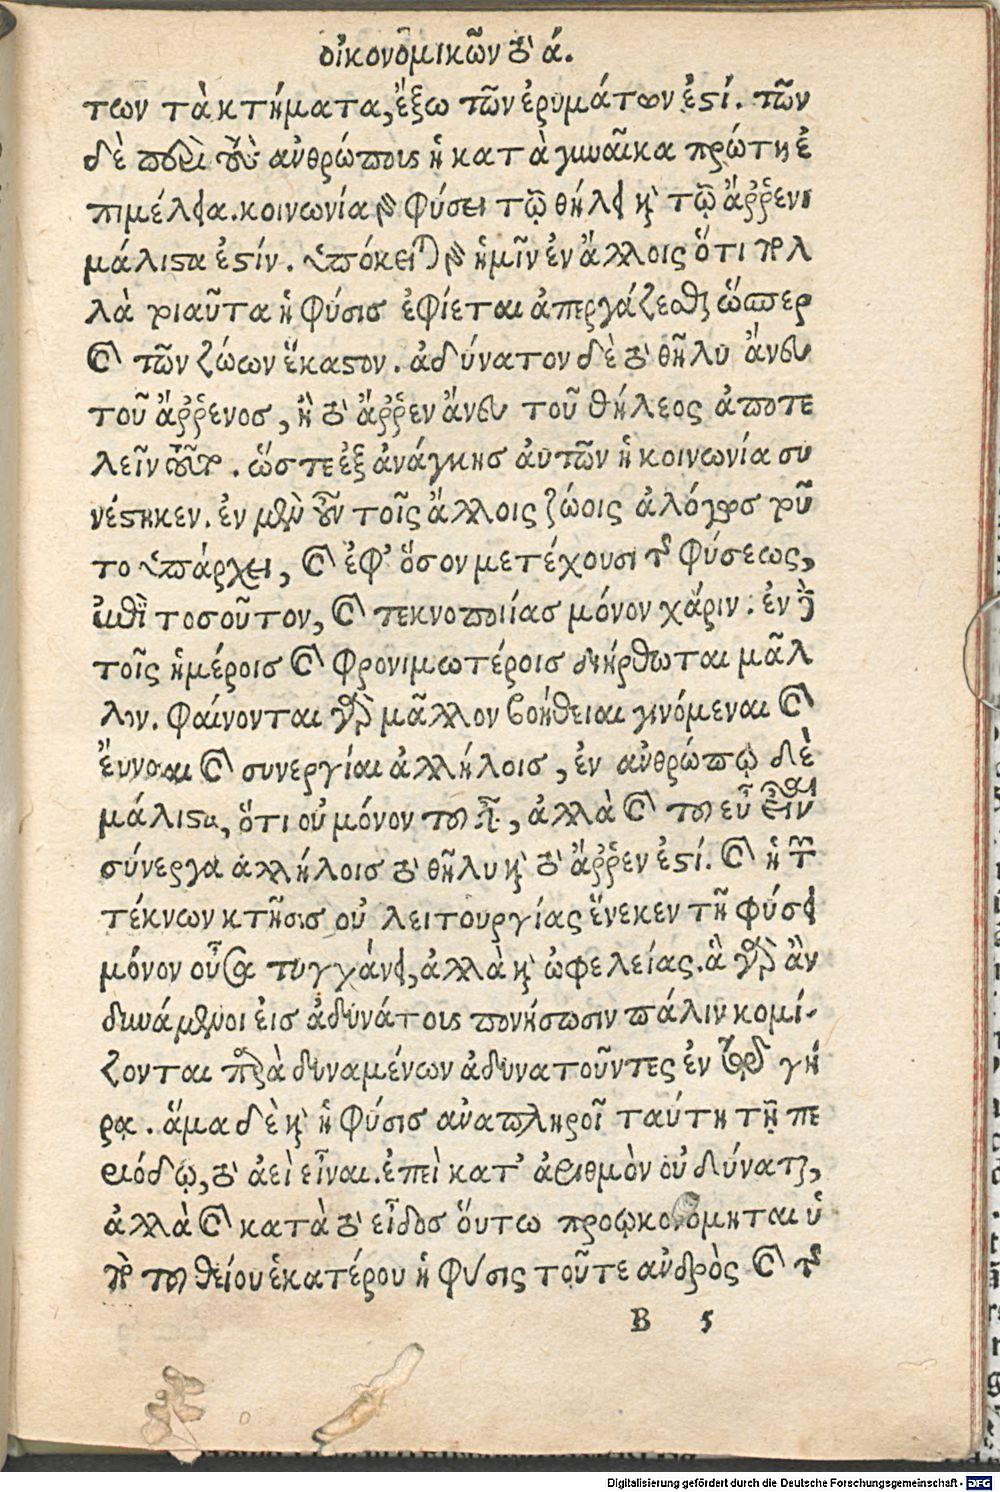 οἰκονομικῶν τὸ ά.
των τὰ κτήματα, ἔξω τῶν ἐρυμάτων ἐστί. τῶν
δὲ περὶ τοὺς ἀνθρώπους ἡ κατὰ γυναῖκα πρώτη ἐ
πιμέλεια. κοινωνία γὰρ φύσει τῷ θήλει καὶ τῷ ἄῤῥενι
μάλιστα ἐστίν. ὑπόκειται γὰρ ἡμῖν ἐν ἄλλοις ὅτι πολ
λὰ τοιαῦτα ἡ φύσις ἐφίεται ἀπεργάζεσθαι ὥσπερ
καὶ τῶν ζώων ἕκαστον. ἀδύνατον δὲ τὸ θῆλυ ἄνευ
τοῦ ἄῤῥενος, ἢ τὸ ἄῤῥεν ἄνευ τοῦ θήλεος ἀποτε
λεῖν τοῦτο. ὥστε ἐξ ἀνάγκης αὐτῶν ἡ κοινωνία συ
νέστηκεν. ἐν μὲν οὖν τοῖς ἄλλοις ζώοις ἀλόγως τοῦ
το ὑπάρχει, καὶ ἐφ' ὅσον μετέχουσι τῆς φύσεως,
ἐπὶ τοσοῦτον, καὶ τεκνοποιίας μόνον χάριν. ἐν δὲ
τοῖς ἡμέροις καὶ φρονιμωτέροις διήρθωται μᾶλ
λον. φαίνονται γὰρ μᾶλλον βοήθειαι γινόμεναι καὶ
ἔυνοιαι καὶ συνεργίαι ἀλλήλοις, ἐν ἀνθρώπῳ δὲ
μάλιστα, ὅτι οὐ μόνον τοῦ εἶναι, ἀλλὰ καὶ τοῦ εὖ εἶναι
σύνεργα ἀλλήλοις τὸ θῆλυ καὶ τὸ ἄῤῥεν ἐστί. καὶ ἡ τῶν
τέκνων κτῆσις οὐ λειτουργίας ἕνεκεν τῇ φύσει
μόνον οὖσα τυγχάνει, ἀλλὰ καὶ ὠφελείας. ἃ γὰρ ἂν
δυνάμενοι εἰς ἀδυνάτους πονήσωσιν πάλιν κομί-
ζονται παρὰ δυναμένων ἀδυνατοῦντες ἐν τῷ γή
ρᾳ. ἅμα δὲ καὶ ἡ φύσις ἀναπληροῖ ταύτη τῇ πε
ριόδῳ, τὸ ἀεὶ εἶναι. ἐπεὶ κατ' ἀριθμὸν οὐ δύναται,
ἀλλὰ καὶ κατὰ τὸ εἶδος ὅυτω προῳκονόμηται ὑ
πὸ τοῦ θείου ἑκατέρου ἡ φύσις τοῦτε ἀνδρὸς καὶ τῆς
B 5
Digitalisierung gefördert durch die Deutsche Forschungsgemeinschaft - DFG